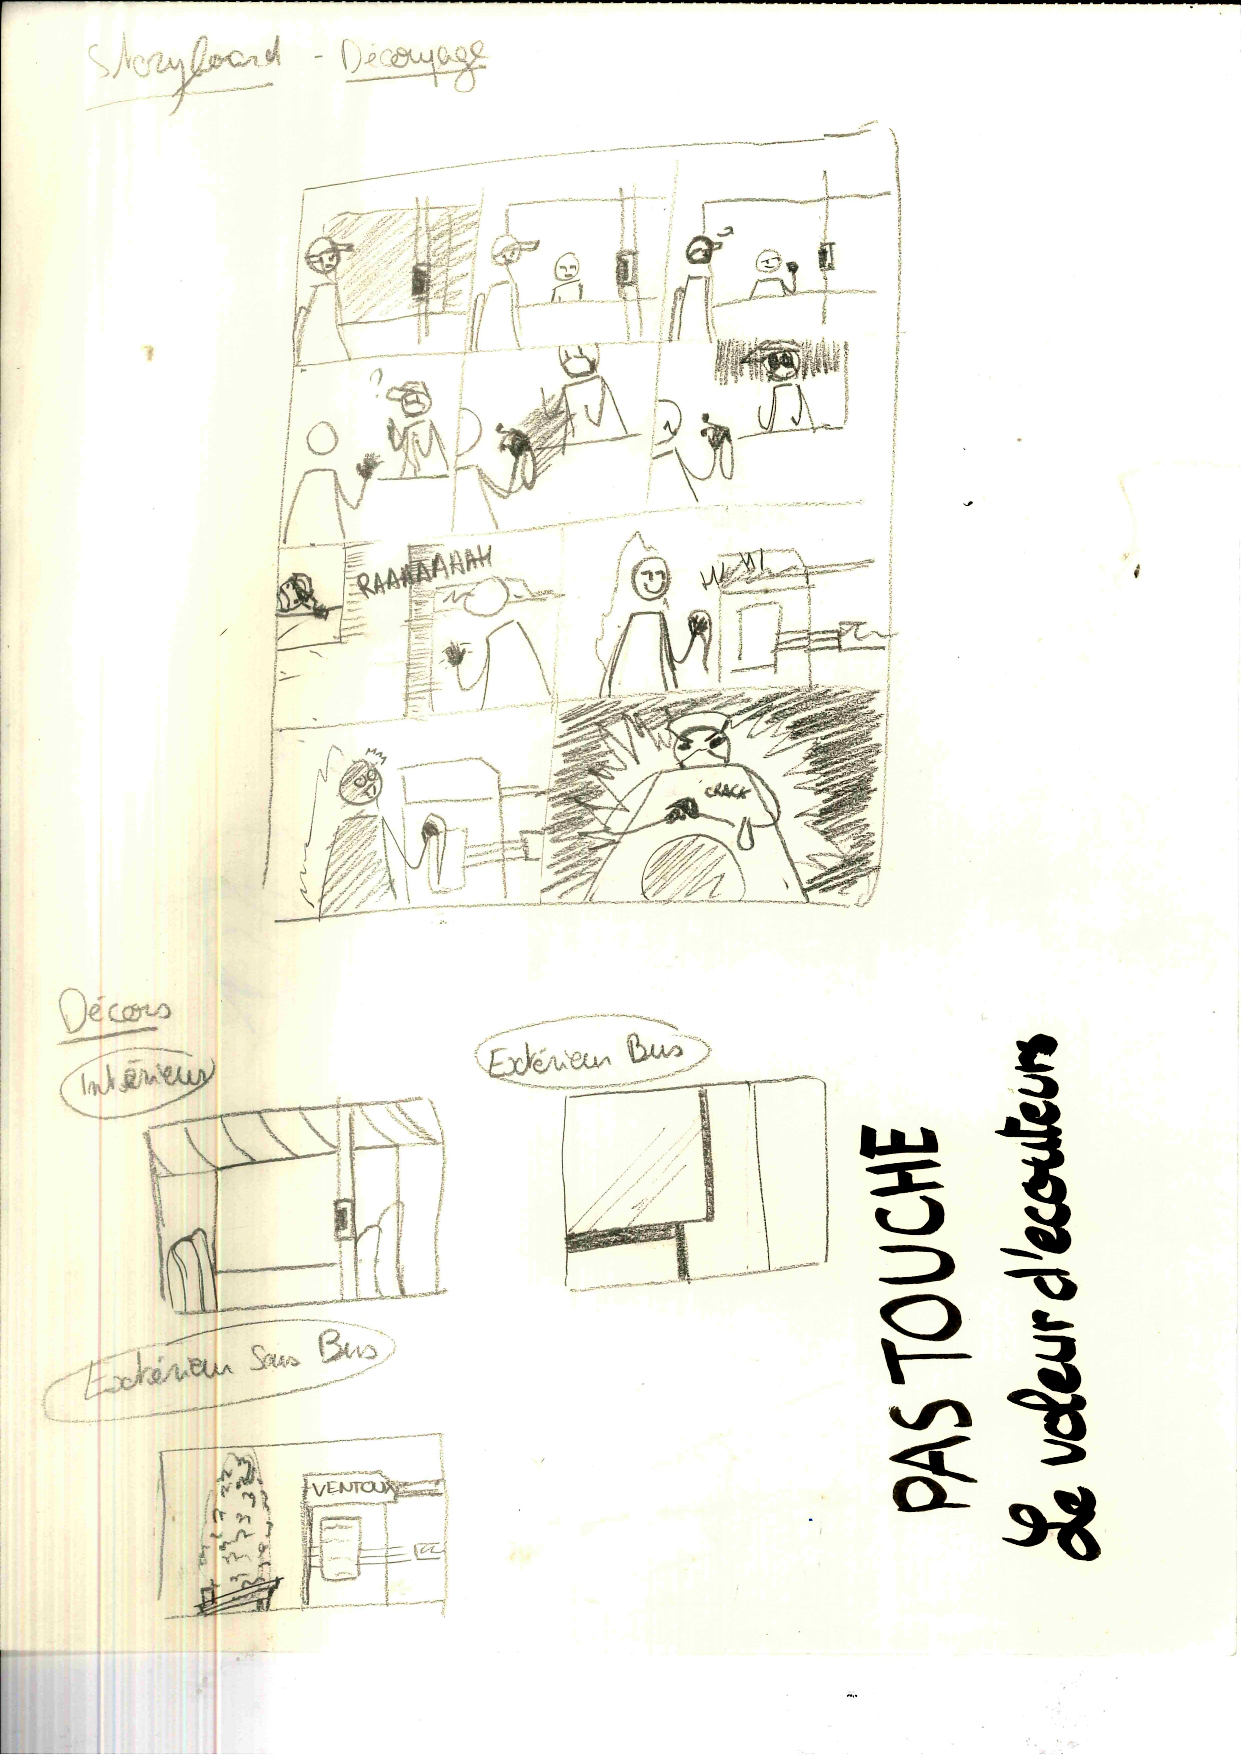 Storyboard - Découpage
?
?
RAAAAAAAH
CRACK
Décors
Intérieur
Extérieur Bus
Extérieur Sans Bus
VENTOUX
PAS TOUCHE
Le voleur d'ecouteurs